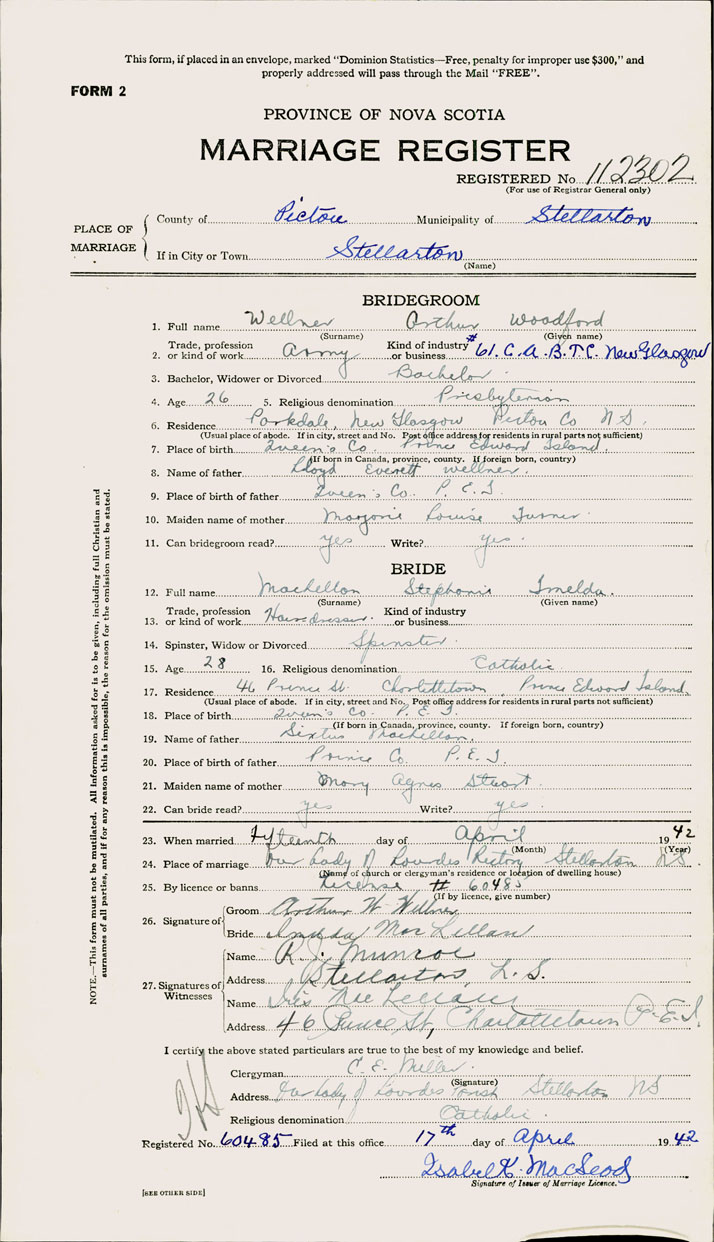 This form, if placed in an envelope, marked "Dominion Statistics—Free, penalty for improper use $300," and
properly addressed will pass through the Mail "FREE".
FORM 2
PROVINCE OF NOVA SCOTIA
MARRIAGE REGISTER
REGISTERED No. 112302
(For use of Registrar General only)
PLACE OF MARRIAGE
County of Pictou Municipality of Stellarton
If in City or Town Stellarton
(Name)
BRIDEGROOM
1. Full name Wellner Arthur Woodford
(Surname) (Given name)
2. Trade, profession or kind of work Army Kind of industry or business #61. C. A. B. T. C. New Glasgow
3. Bachelor, Widower or Divorced Bachelor
4. Age 26 5. Religious denomination Presbyterian
6. Residence Parkdale, New Glasgow Pictou Co N.S.
(Usual place of abode. If in city, street and No. Post office address for residents in rural parts not sufficient)
7. Place of birth Queen's Co. Prince Edward Island.
(If born in Canada, province, county. If foreign born, country)
8. Name of father Lloyd Everett Wellner.
9. Place of birth of father Queen's Co. P.E.I.
10. Maiden name of mother Marjorie Louise Turner.
11. Can bridegroom read? yes Write? yes.
BRIDE
12. Full name MacLellan Stephanie Imelda.
(Surname) (Given name)
13. Trade, profession or kind of work Hairdresser. Kind of industry or business
14. Spinster, Widow or Divorced Spinster.
15. Age 28 16. Religious denomination Catholic.
17. Residence 46 Prince St. Charlottetown, Prince Edward Island.
(Usual place of abode. If in city, street and No. Post office address for residents in rural parts not sufficient)
18. Place of birth Queen's Co. P.E.I.
(If born in Canada, province, county. If foreign born, country)
19. Name of father Sixtus MacLellan.
20. Place of birth of father Prince Co. P.E.I.
21. Maiden name of mother Mary Agnes Stuart.
22. Can bride read? yes Write? yes.
23. When married Fifteenth day of April 1942
(Month) (Year)
24. Place of marriage Our Lady of Lourdes Rectory Stellarton N.S.
(Name of church or clergyman's residence or location of dwelling house)
25. By licence or banns License # 60485
(If by licence, give number)
26. Signature of
Groom Arthur W Wellner
Bride Imelda MacLellan
27. Signatures of Witnesses
Name R. J. Munroe
Address Stellarton, N.S.
Name Iris MacLellan
Address 46 Prince St, Charlottetown P.E.I.
I certify the above stated particulars are true to the best of my knowledge and belief.
Clergyman C. E. Miller.
(Signature)
Address Our Lady of Lourdes Parish Stellarton NS
Religious denomination Catholic.
Registered No. 60485 Filed at this office 17th day of April 1942
Isabel K. MacLeod
Signature of Issuer of Marriage Licence.
[SEE OTHER SIDE]
NOTE.—This form must not be mutilated. All information asked for is to be given, including full Christian and
surnames of all parties, and if for any reason this is impossible, the reason for the omission must be stated.